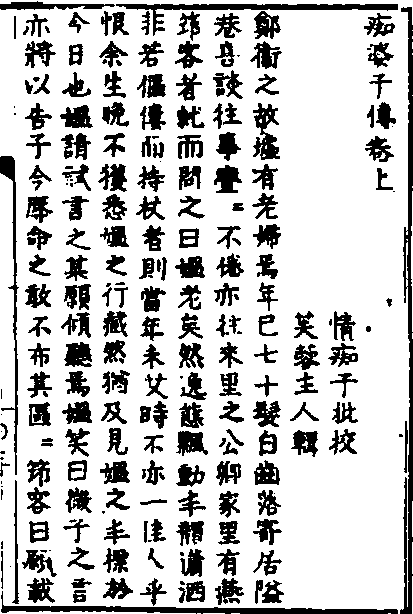 痴婆子傳卷上
情痴子批校
芙蓉主人輯
鄭衛之故墟有老婦焉年已七十髮白齒落寄居隘
巷喜談往事亹〻不倦亦往來里之公卿家里有燕
筇客者就而問之曰媼老矣然逸態飄動丰韻瀟洒
非若傴僂而持杖者則當年未艾時不亦一佳人乎
恨余生晚不獲悉媼之行藏然猶及見媼之丰標於
今日也媼請試言之某願傾聽焉媼笑曰微子之言
亦將以告子今辱命之敢不布其區〻筇客曰願載